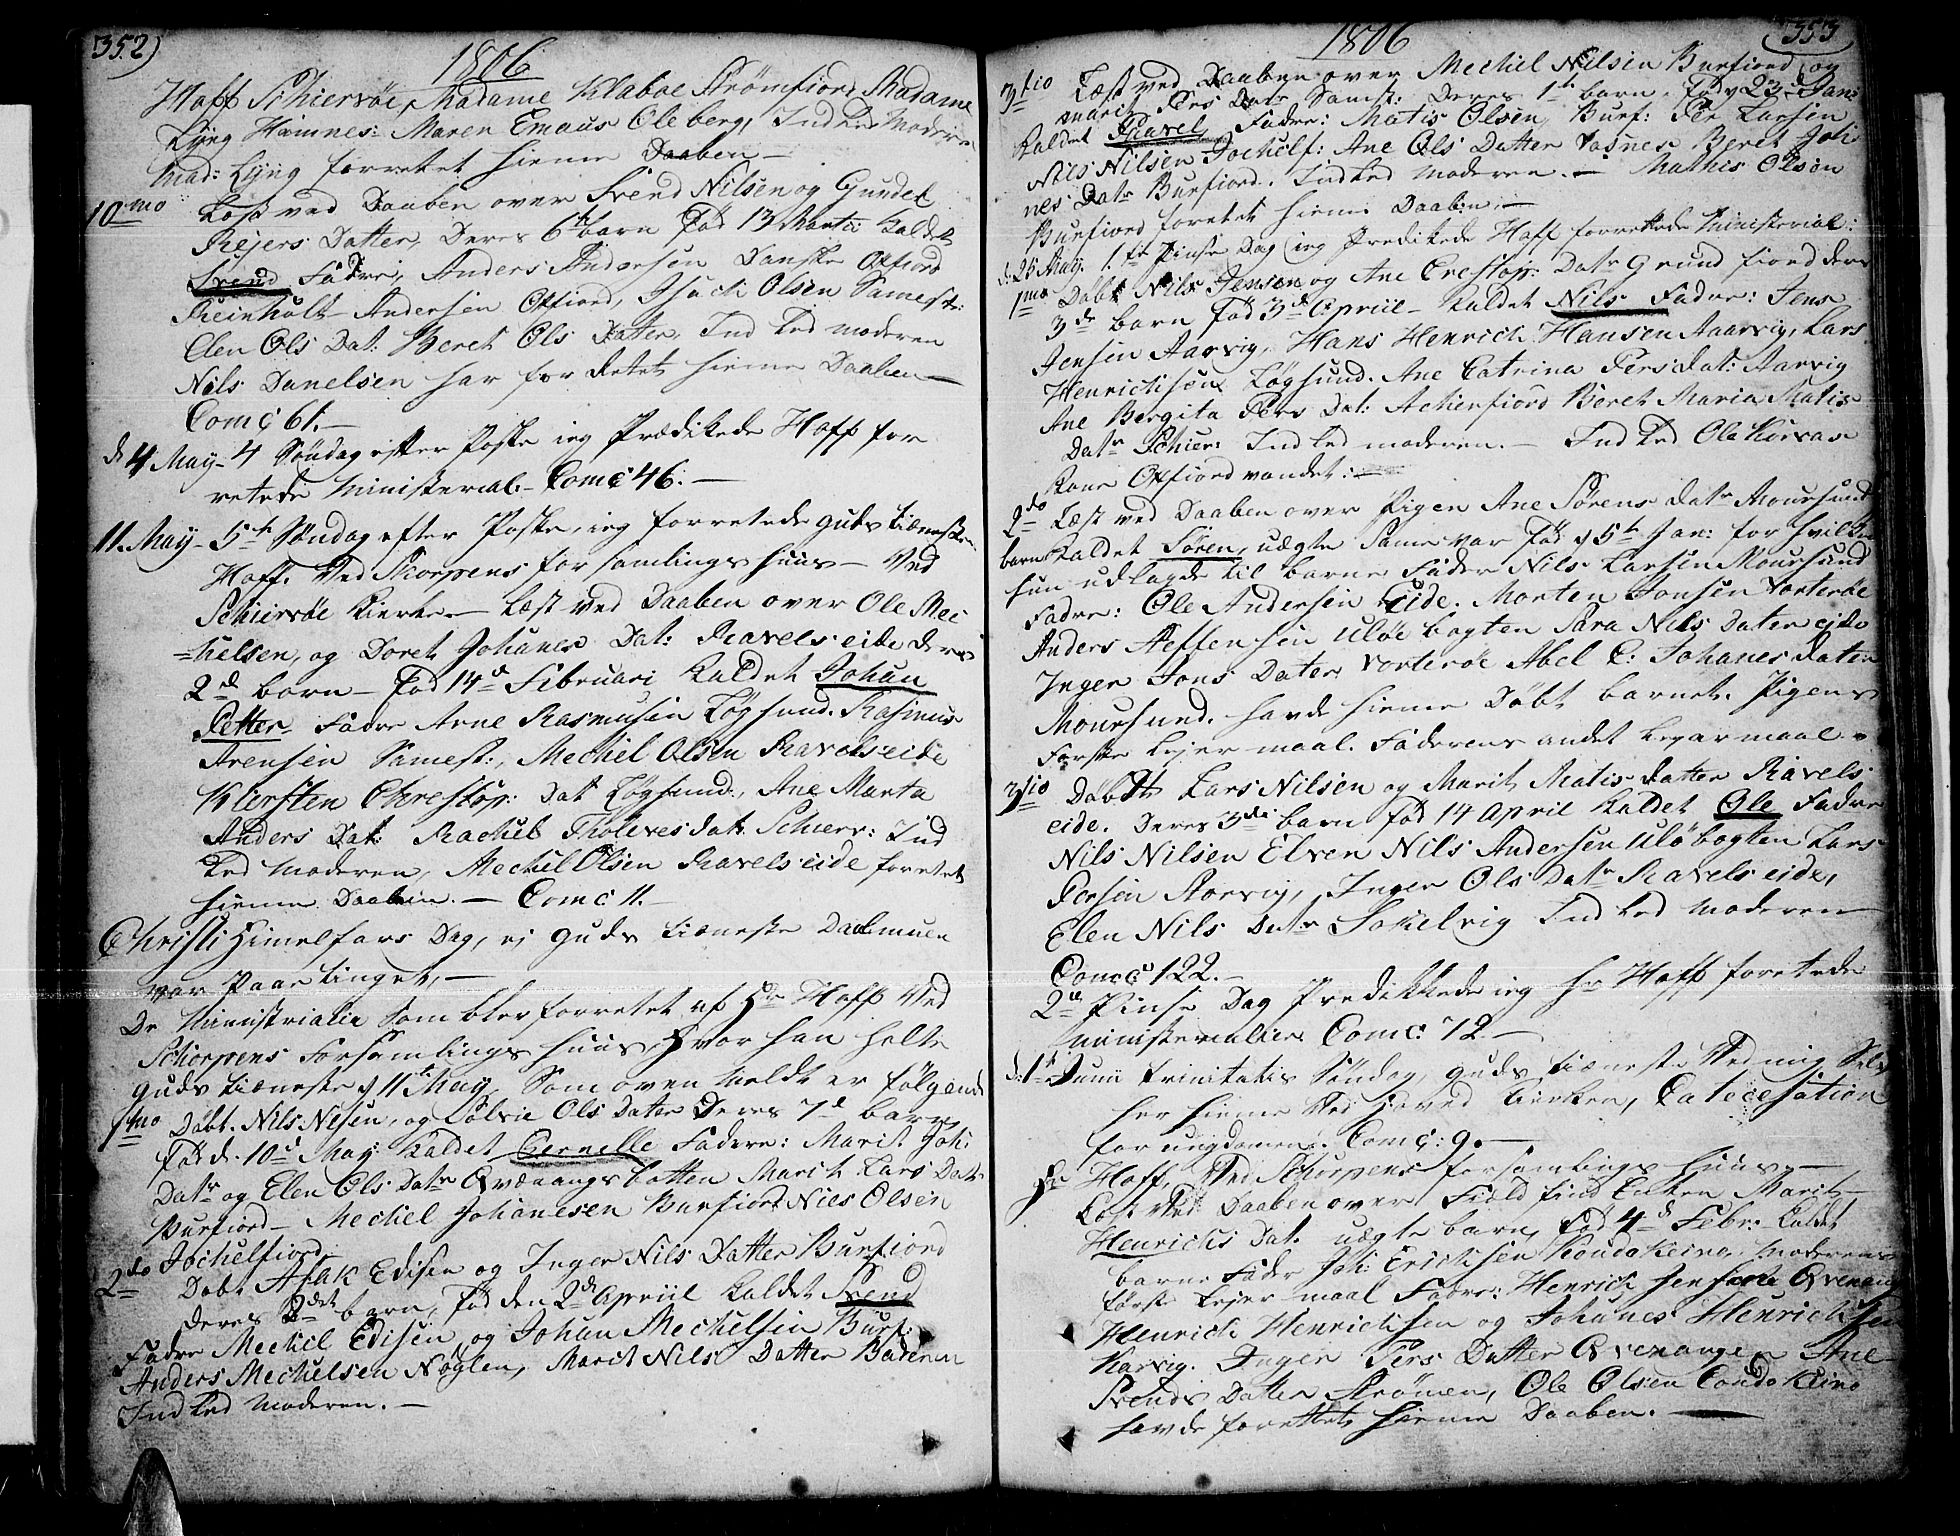 352)
1806
Hoff Schiervøe, Madame Klaboe Strømfiord Madame
Lyng Hamnes: Maren Emaus Oleberg, Indled Moderen
Mad: Lyng forretet hieme Daaben —
10mo Læst ved Daaben over Svend Nilsen og Gundel
Rejers Datter, Deres 6te barn Fød 13 Martii Kaldet
Svend Fadre, Anders Andersen Danske Oxfiord
Reinholt Andersen Oxfiord, Isach Olsen Samest:
Elen Ols Dat: Beret Ols Datter, Ind Led moderen
Nils Danelsen har for retet hieme Daaben —
Comc 61. —
d 4 May - 4 Søndag efter Poske ieg Prædikede Hoff for
retede Ministerial. - Comc 46. —
11. May - 5te Søndag efter Poske, ieg forretede guds tieneste
Hoff. Ved Skorpens for samlings huus — Ved
Schiervøe Kierke — Læst ved Daaben over Ole Mec
=kelsen, og Doret Johanes Dat: Ravels eide Deres
2d barn — Fød 14d Februari Kaldet Johan
Petter. Fadre Arne Rasmusen Løgsund. Rasmus
Arensen Samest:, Mechel Olsen Ravelseide
Kiersten Chrestop: Dat Løgsund:, Ane Marta
Anders Dat: Rachel Tholeves dat: Schierv: Ind
Led Moderen, Mechel Olsen Ravelseide foretet
hieme Daaben. — Comc 11. —
Christi Himelfars Dag, ej guds tieneste Da almuen
var paa tinget, —
De Ministrialia som blev forretet af Hr Hoff Ved
Schorpens Forsamlings huus, Hvor han holte
guds tieneste d 11te May, Som oven meldt er følgende
1mo Døbt. Nils Nilsen, og Sølvie Ols Dater Deres 7d barn
Fød d. 10d May: Kaldet Pernelle Fadere: Marit Joh:
Datr og Elen Ols Datr Qvænangs botten Marit Lars Dat:
Burfiord — Mechel Johanesen Burfiord Nils Olsen
Jochelfiord
2do Døbt Aslak Edisen og Inger Nils Datter Burfiord
Deres 2det barn, Fød den 2de Apriil Kaldet Svend
Fadre Mechel Edisen, og Johan Mechelsen Burf:
Anders Mechelsen Nøglen, Marit Nils Datter Baderen
Ind Led Moderen. —
353
1806
3tio Læst ved Daaben over Mechel Nilsen Burfiord og
Marit Pers Datr Samst: Deres 1te barn, Fød 23d Jan:
Kaldet Ravel, Fadre: Matis Olsen, Burf: Per Larsen
Nils Nilsen Jochelf: Ane Ols Datter Vasnes Beret Joh:
nes Datr Burfiord. Indled Moderen. — Mathis Olsen
Burfiord foretet hieme Daaben: —
d. 25 May. 1te Pinse Dag ieg Predikede Hoff forrettede Ministerial:
1mo Døbt Nils Jensen og Ane Crestop: Datr Grund fiord deres
3de barn Fød 3d Apriil - Kaldet Nils Fadre: Jens
Jensen Aarvig, Hans Henrich Hansen Aaarvig, Lars
Henrichsøn Løgsund. Ane Catrina Pers dat: Aarvig
Ane Bergita Pers Dat: Acherfiord Beret Maria Matis
Datr Schier: Ind Led moderen. — Ind Led Ole Korvas
Kone Oxfiord vandet: —
2do Læst ved Daaben over Pigen Ane Sørens datr Moursund
barn Kaldet Søren, uægte Same var Fød d 5te Jan: for hvilke
hun udlagde til barne Fader Nils Larsen Moursund
Fadre: Ole Andersen Eide. Morten Jonsen Vorterøe
Anders Steffensen Uløe bogten Sara Nils Dater eide
Inger Jons Dater Vorterøe Abel C: Johanes datter
Moursund. havde hieme Døbt barnet. Pigens
Første Lejer maal. Faderens andet Lejermaal —
3tio Døbt Lars Nilsen og Marit Matis datter Ravels
eide. Deres 3die barn Fød 14 April Kaldet Ole Fadre
Nils Nilsen Elven Nils Andersen Uløbogten Lars
Persen Storvig, Inger Ols Datr Ravels eide,
Elen Nils Datr Sokelvig Ind Led Moderen
Comc 122. —
2de Pinse Dag Predikkede ieg Hr Hoff foretede
ministerialier Comc: 72. —
d: 1te Junii Trinitatis Søndag, guds tieneste Ved mig Selv
her hieme Ved Hoved Kirken, Catecesation
for ungdomen: Comc: 9. —
Hr Hoff, Ved Schorpens Forsamlings huus, —
Læst Ved Daaben over Field find Enken Marit
Henrichs Dat. uægte barn, Fød 4d Febr: Kaldet
barne Fader Joh: Erichsen Koudokeino, Moderens
første Lejer maal Fadre: Henrich Jensen Qvenang
Henrich Henrichsen og Johanes Henrichsen
Karvig. Inger Pers Datter Qvenangen Ane
Svends Datter Strømen, Ole Olsen Coudokeino
havde forettet hieme Daaben. —